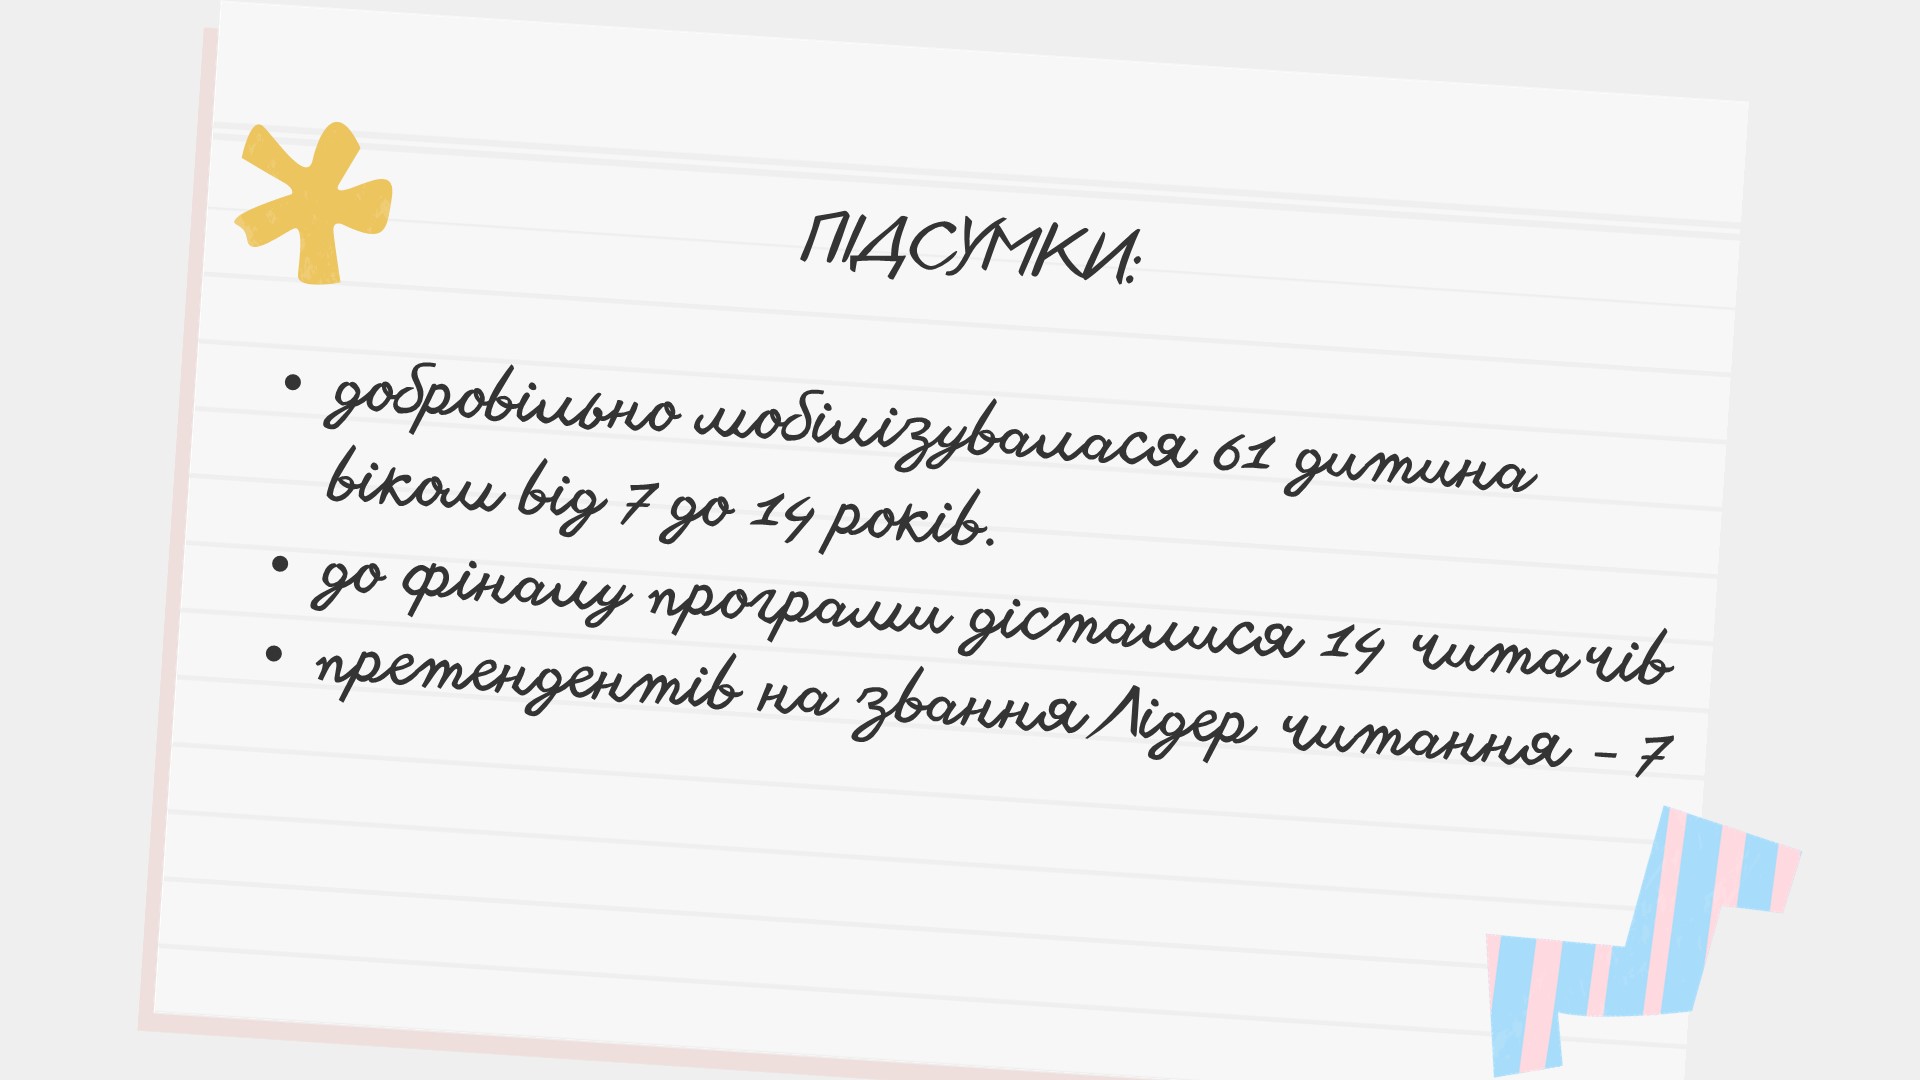 ПІДСУМКИ:
• добровільно мобілізувалася 61 дитина
віком від 7 до 14 років.
• до фіналу програми дісталися 14 читачів
• претендентів на звання Лідер читання – 7